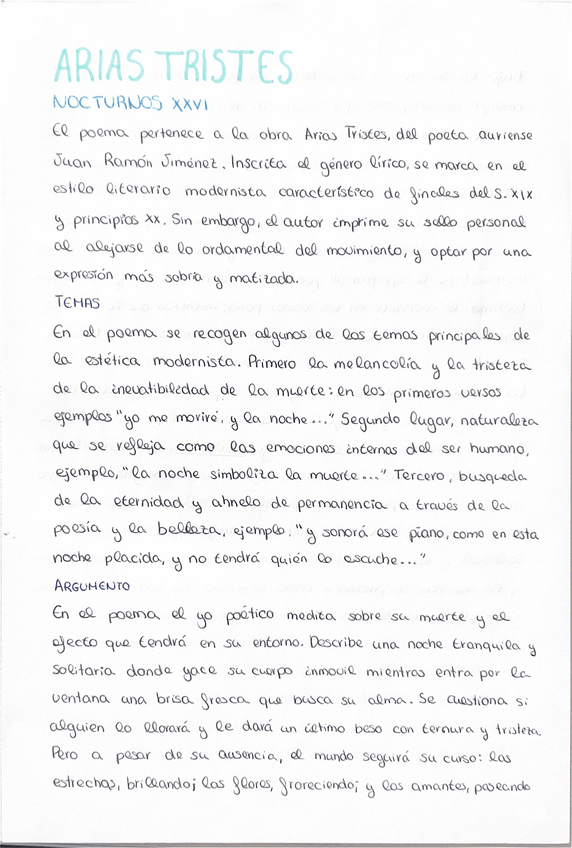 ARIAS TRISTES
NOCTURNOS XXVI
El poema pertenece a la obra Arias Tristes, del poeta auriense
Juan Ramón Jiménez. Inscrita el género lírico, se marca en el
estilo literario modernista característico de finales del S. XIX
y principios XX. Sin embargo, el autor imprime su sello personal
al alejarse de lo ordamental del movimiento, y optar por una
expresión más sobria y matizada.
TEMAS
En el poema se recogen algunos de los temas principales de
la estética modernista. Primero la melancolía y la tristeza
de la inevatibilidad de la muerte: en los primeros versos
ejemplos "yo me moriré, y la noche..." Segundo lugar, naturaleza
que se refleja como las emociones internas del ser humano,
ejemplo, "la noche simboliza la muerte..." Tercero, busqueda
de la eternidad y ahnelo de permanencia a través de la
poesía y la belleza, ejemplo, "y sonorá ese piano, como en esta
noche placida, y no tendrá quién lo escuche..."
ARGUMENTO
En el poema el yo poético medita sobre su muerte y el
efecto que tendrá en su entorno. Describe una noche tranquila y
solitaria donde yace su cuerpo inmovil mientras entra por la
ventana una brisa fresca que busca su alma. Se cuestiona si
alguien lo llorará y le dará un último beso con ternura y tristeza.
Pero a pesar de su ausencia, el mundo seguirá su curso: las
estrechas, brillando; las flores, froreciendo; y las amantes, paseando